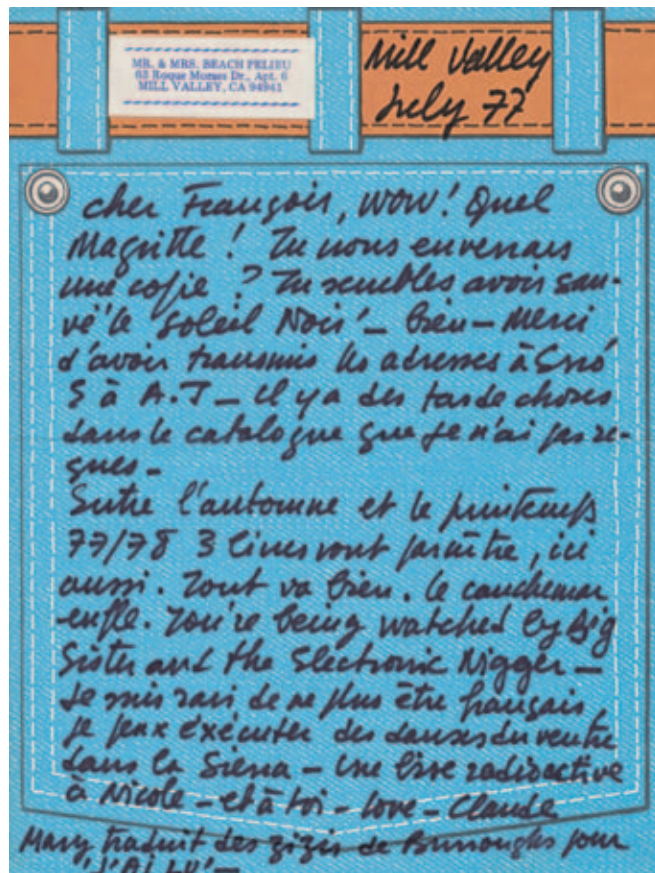 MR. & MRS. BEACH PELIEU
63 Roque Moraes Dr., Apt. 6
MILL VALLEY, CA 94941
Mill Valley
July 77
cher François, wow! Quel
Magritte! Tu nous enverrais
une copie? Tu sembles avoir sau-
vé 'le Soleil Noir' – bien – Merci
d'avoir transmis les adresses à
5 à A.T – il y a des tas de choses
dans le catalogue que je n'ai pas re-
çues –
Entre l'automne et le printemps
77/78 3 livres vont paraître, ici
aussi. Tout va bien. le cauchemar
enfle. You're being watched by Big
Sister and the Electronic Nigger –
Je suis ravi de ne plus être français
je peux exécuter des danses du ventre
dans la Sierra – une bise radioactive
à Nicole – et à toi – love – Claude
Mary traduit des zizis de Burroughs pour